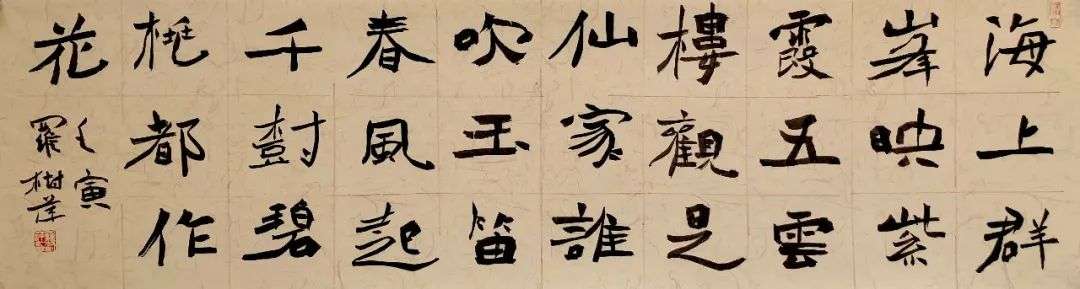 海上群
峰映紫
霞五雲
樓觀是
仙家誰
吹玉笛
春風起
千樹碧
桃都作
花
壬寅
羅树